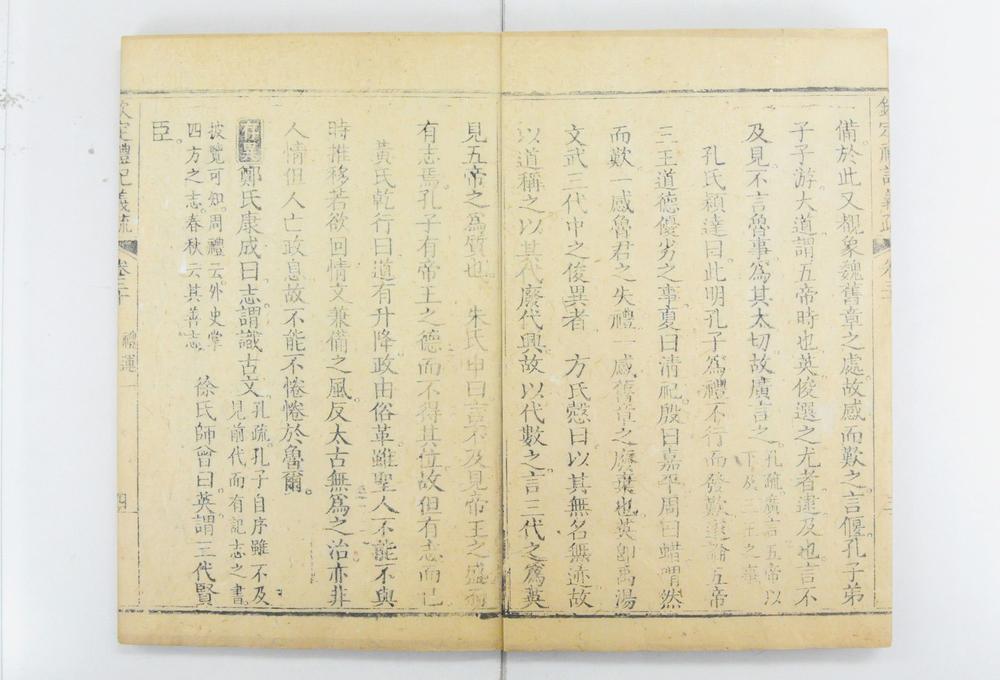 欽定禮記義疏　卷三十　三
備於此又觀象魏舊章之處故感而歎之言偃孔子弟
子子游大道謂五帝時也英俊選之尤者逮及也言不
及見不言魯事爲其太切故廣言之。孔疏廣言五帝以
下及三王之事
孔氏穎達曰此明孔子爲禮不行而發歎遂論五帝
三王道德優劣之事夏曰清祀殷曰嘉平周曰蜡喟然
而歎一感魯君之失禮一感舊章之廢棄也英卽禹湯
文武三代中之俊異者　方氏慤曰以其無名無迹故
以道稱之以其代廢代興故以代數之言三代之爲英
見五帝之爲質也　朱氏申曰言不及見帝王之盛
有志焉孔子有帝王之德而不得其位故但有志而已
黃氏乾行曰道有升降政由俗革雖聖人不能不與
時推移若欲回情文兼備之風反太古無爲之治亦非
人情但人亡政息故不能不惓惓於魯爾。
存異鄭氏康成曰志謂識古文。孔疏孔子自序雖不及
見前代而有記志之書
披覽可知周禮云外史掌
四方之志春秋云其善志。徐氏師曾曰英謂三代賢
臣。
欽定禮記義疏　卷三十　禮運　四